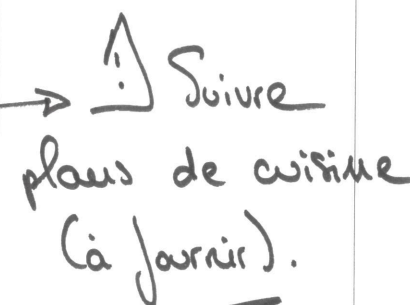 → ⚠ Suivre
plans de cuisine
(à fournir).